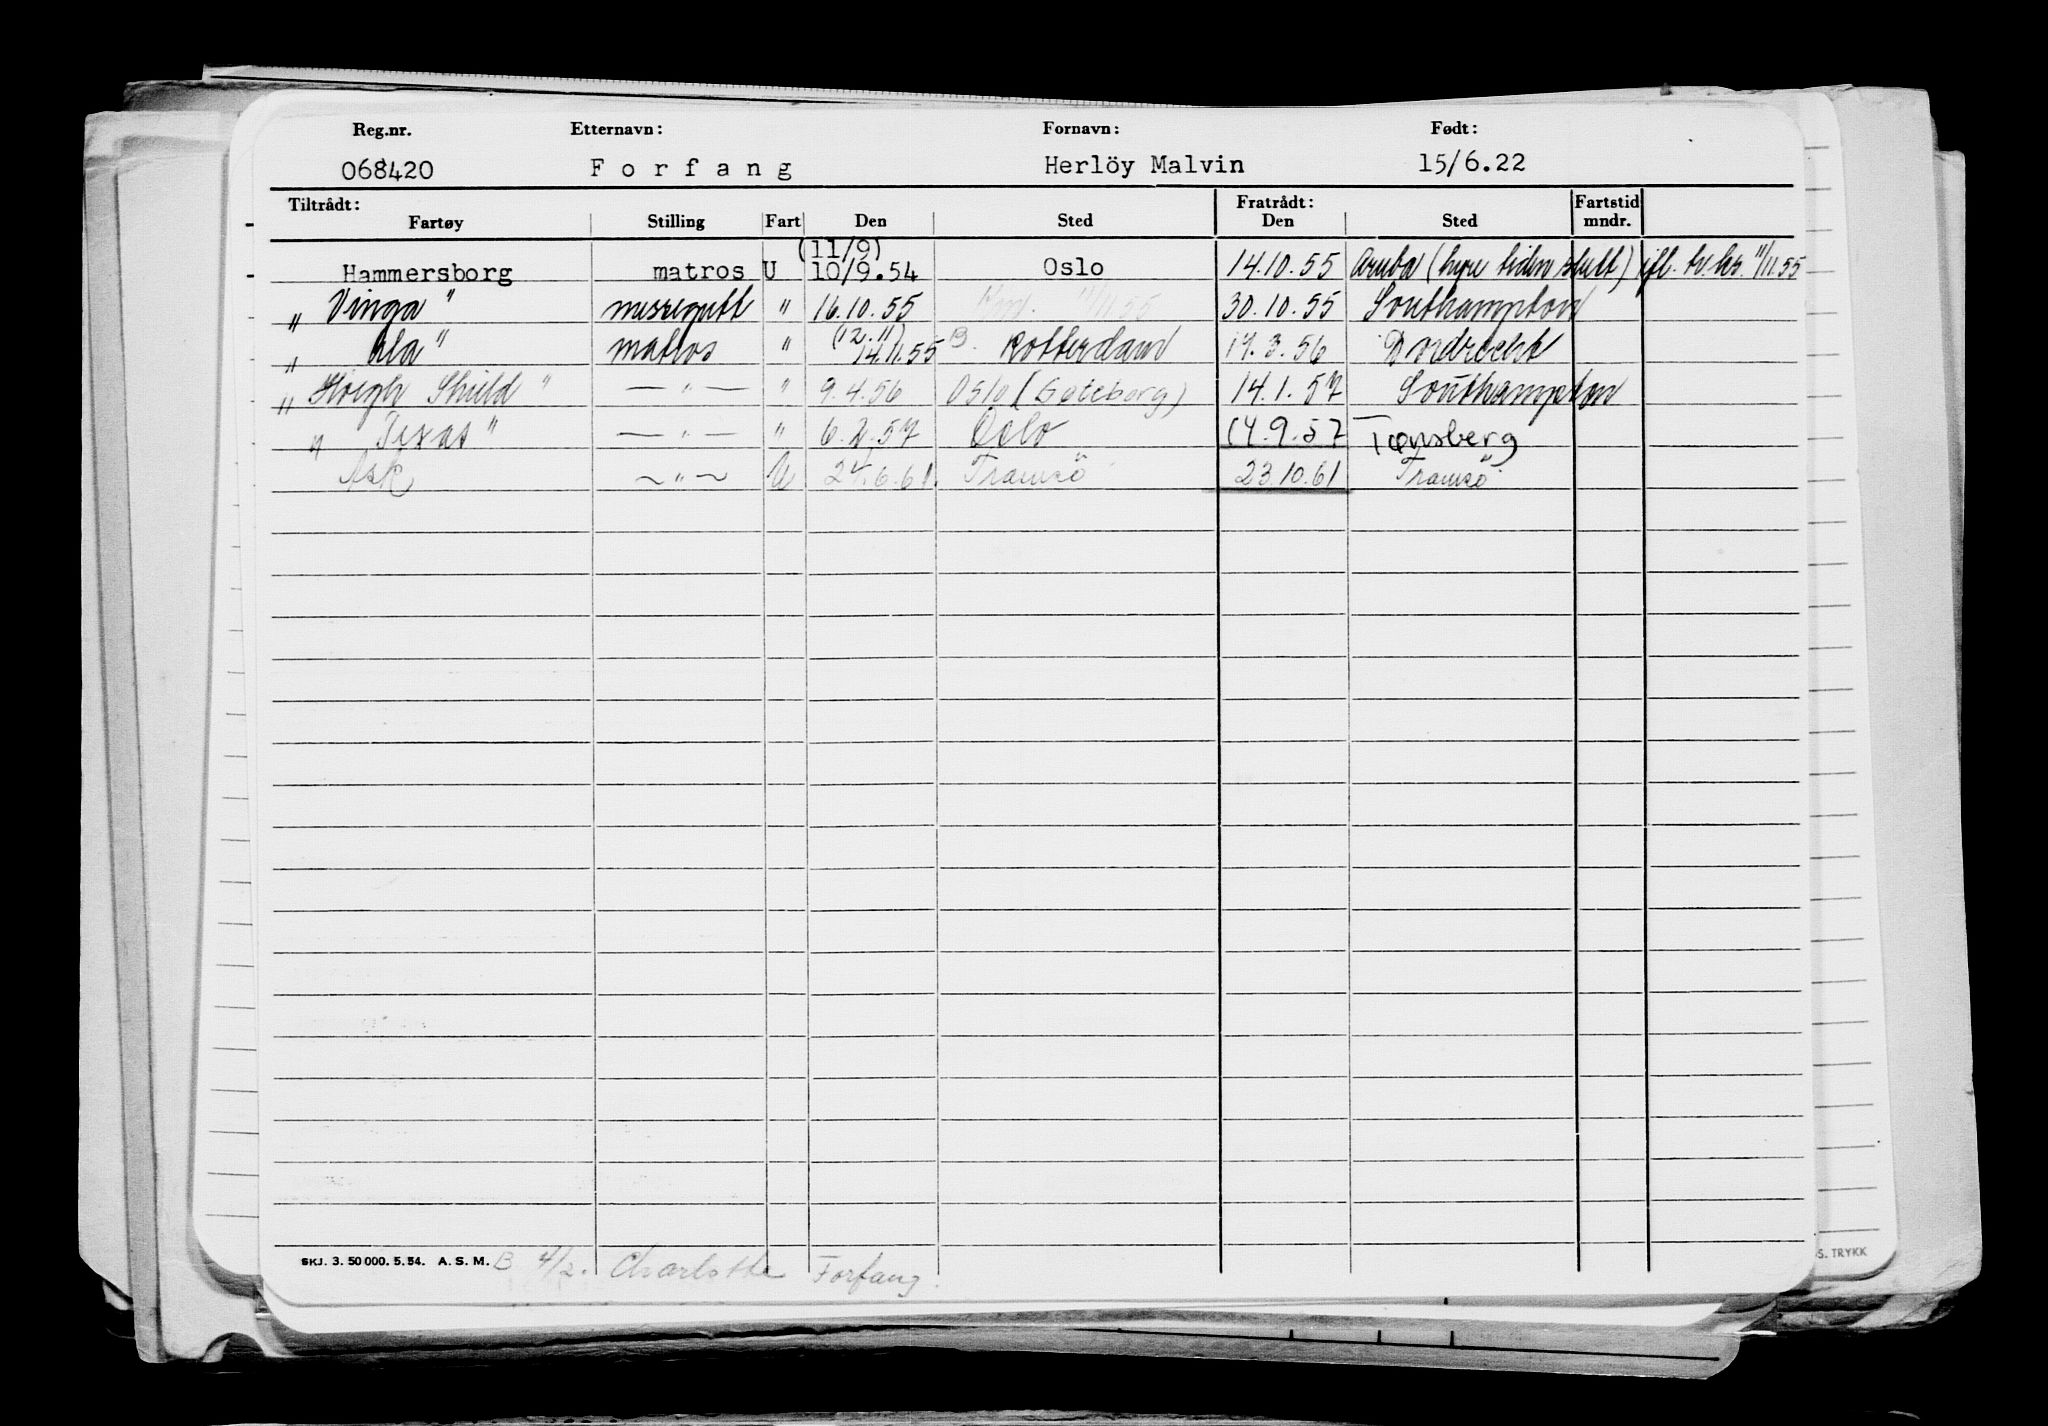 Reg.nr. Etternavn: Fornavn: Født:
068420 Forfang Herlöy Malvin 15/6.22
Tiltrådt: Fratrådt: Fartstid
Fartøy Stilling Fart Den Sted Den Sted mndr.
(11/9)
Hammersborg matros U 10/9.54 Oslo 14.10.55 Aruba (hyre tiden slutt) ifl. 11/11.55
„ Vinga " messegutt " 16.10.55 11/11 55 30.10.55 Southampton
(12.11)
„ Ala " matros " 14.11.55 B. Rotterdam 17.3.56 Dordrecht
„ Höegh Shield " — " — " 9.4.56 Oslo (Göteborg) 14.1.57 Southampton
„ Texas " — " — " 6.2.57 Oslo 14.9.57 Tønsberg
Ask ~ " ~ U 24.6.61. Tromsö 23.10.61 Tromsö
SKJ. 3. 50 000. 5. 54. A. S. M. B 4/2. Charlotte Forfang.
S. TRYKK